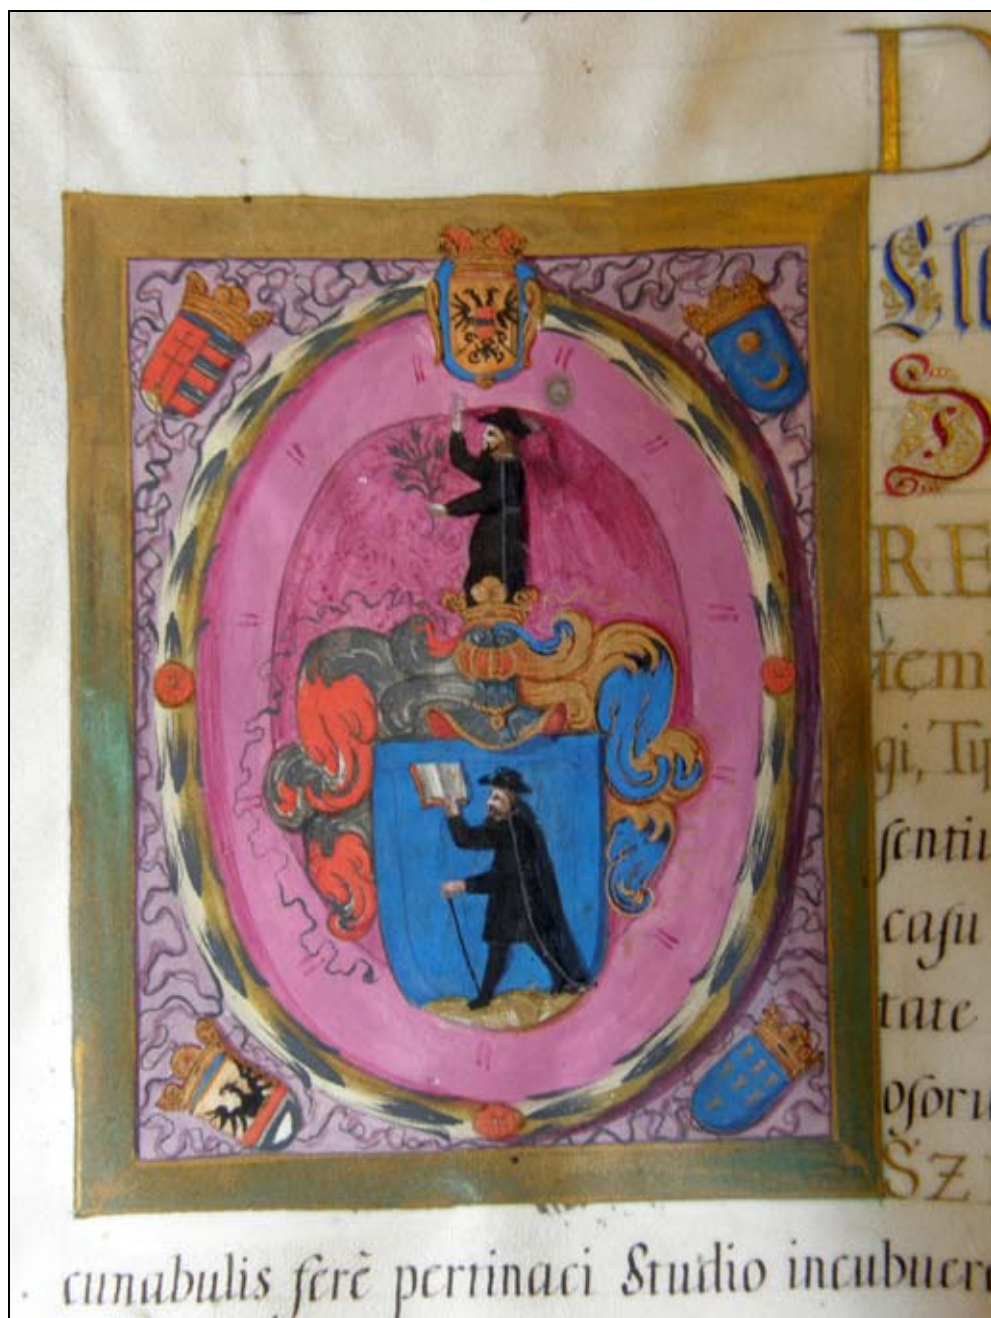 D
Elle
RE
gi, Tip
sentiu
casu
tate
osoru
SZ
cunabulis ferè pertinaci Studio incubuere